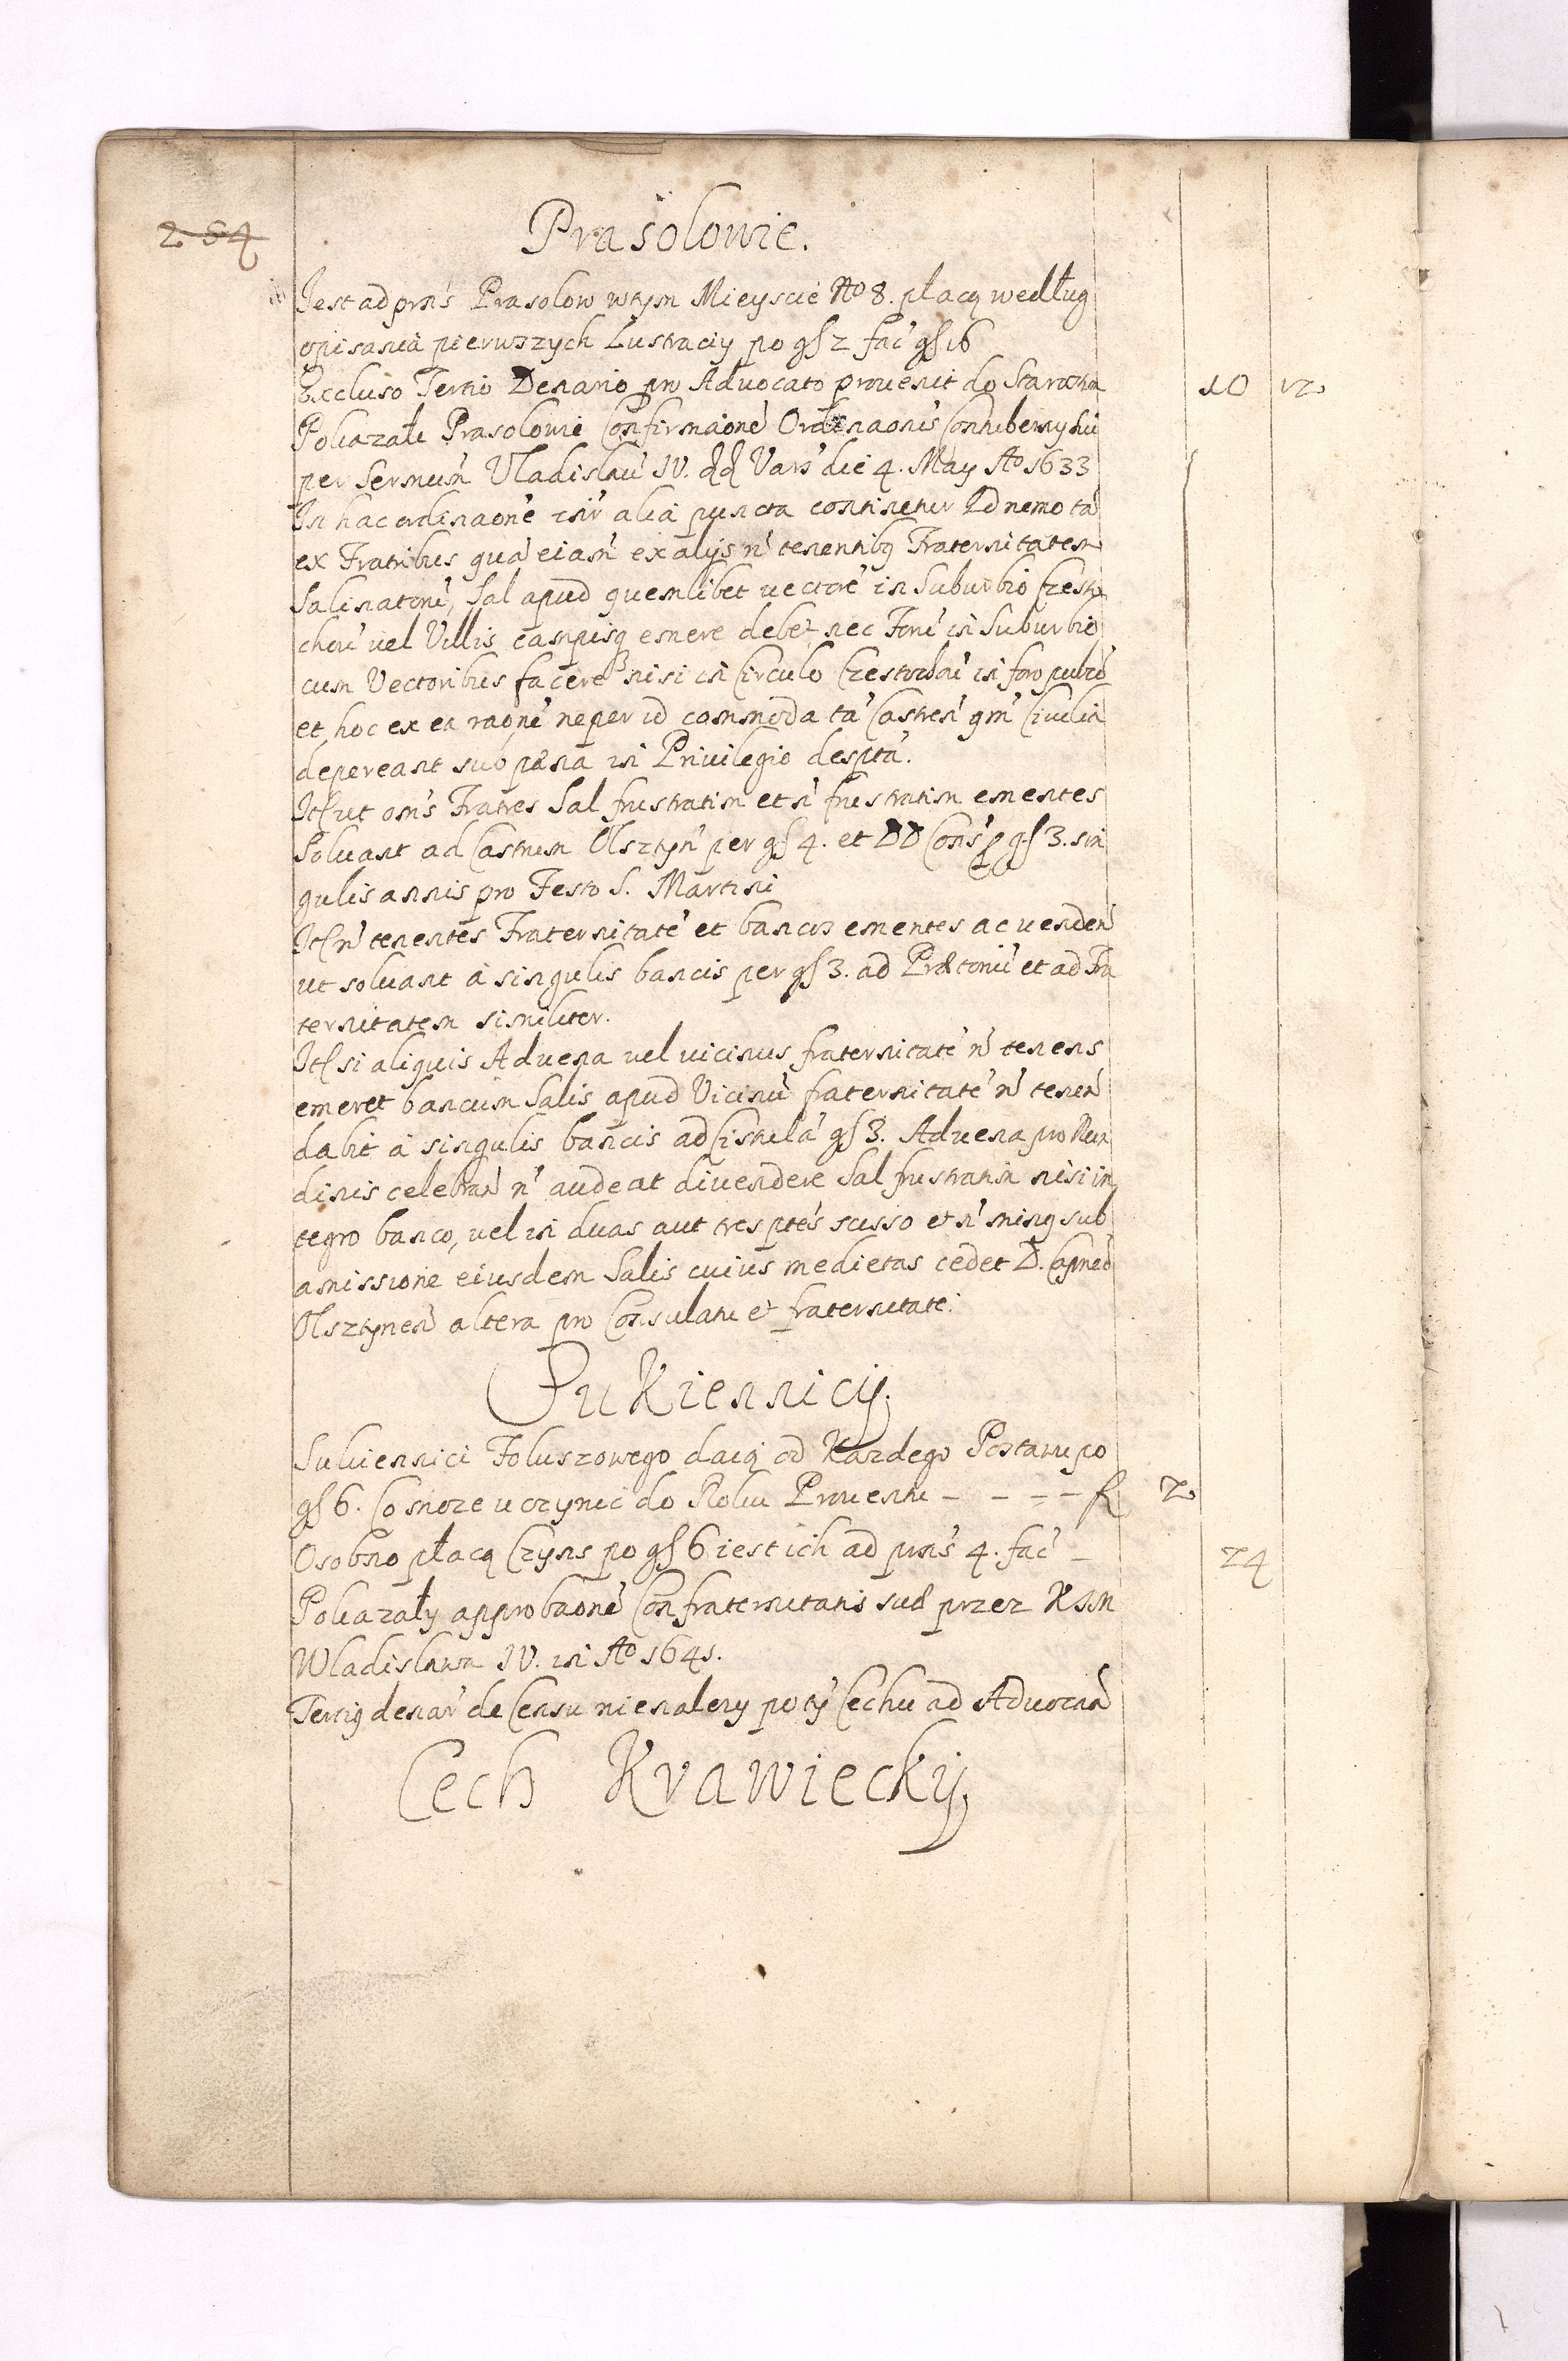 284
Prasolowie.
Jest ad prns Prasolow wtym Mieyscie No 8. płacą według
opisania pierwszych Lustraciy po gś 2 fać gś 16
Excluso Tertio Denario pro Advocato provenit do Starostwa 10 12
Pokazali Prasolowie Confirmaione Ordinaonis Contubernij sui
per Sermum Vladislau IV. dd Vars die 4. May Ao 1633
In hac ordinaone intr alia puncta continetur Qd nemo ta
ex Fratribus qua eiam ex alijs n tenentibq Fraternitatem
Salinatoru, Sal apud quemlibet vectore in Suburbio Czesto
choui vel Villis campisq emere debet nec Foru in Suburbio
cum Vectoribus facere nisi in Circulo Czestochoui in foro pulco
et hoc ex ea raone ne per id commoda ta Castren qm Ciuilia
depereant sub pæna in Privilegio despta.
Itt ut oms Fratres Sal frustratim et n frustratim ementes
Soluant ad Castrum Olsztyn per gś 4. et DD Cons p gś 3. sin
gulis annis pro Festo S. Martini
Itt n tenentes Fraternitate et bancos ementes ac venden
ut soluant a singulis bancis per gś 3. ad Prætoriu et ad Fra
ternitatem similiter.
Itt si aliquis Advena vel vicinus fraternitate n tenens
emeret bancum Salis apud Vicinu fraternitate n tenen
dabit a singulis bancis ad Cistula gś 3. Advena pro Nun
dinis celebran n audeat divendere Sal frustratim nisi in
tegro banco, vel in duas aut tres ptes scisso et n minq sub
amissione eiusdem Salis cuius medietas cedet D. Capneo
Olsztynen altera pro Consulatu et fraternitate.
Sukiennicy.
Sukiennici Foluszowego daią od Kazdego Postawu po
gś 6. Co moze uczynic do Roku Prouentu - - - - fl 2
Osobno płacą Czyns po gś 6 iest ich ad prns 4. fać - 24
Pokazały approbaone Confraternitatis suæ przez KJM
Wladislawa IV. in Ao 1641.
Tertiq denar de Censu nienalezy po ty Cechu ad Advocan
Cech Krawiecky.